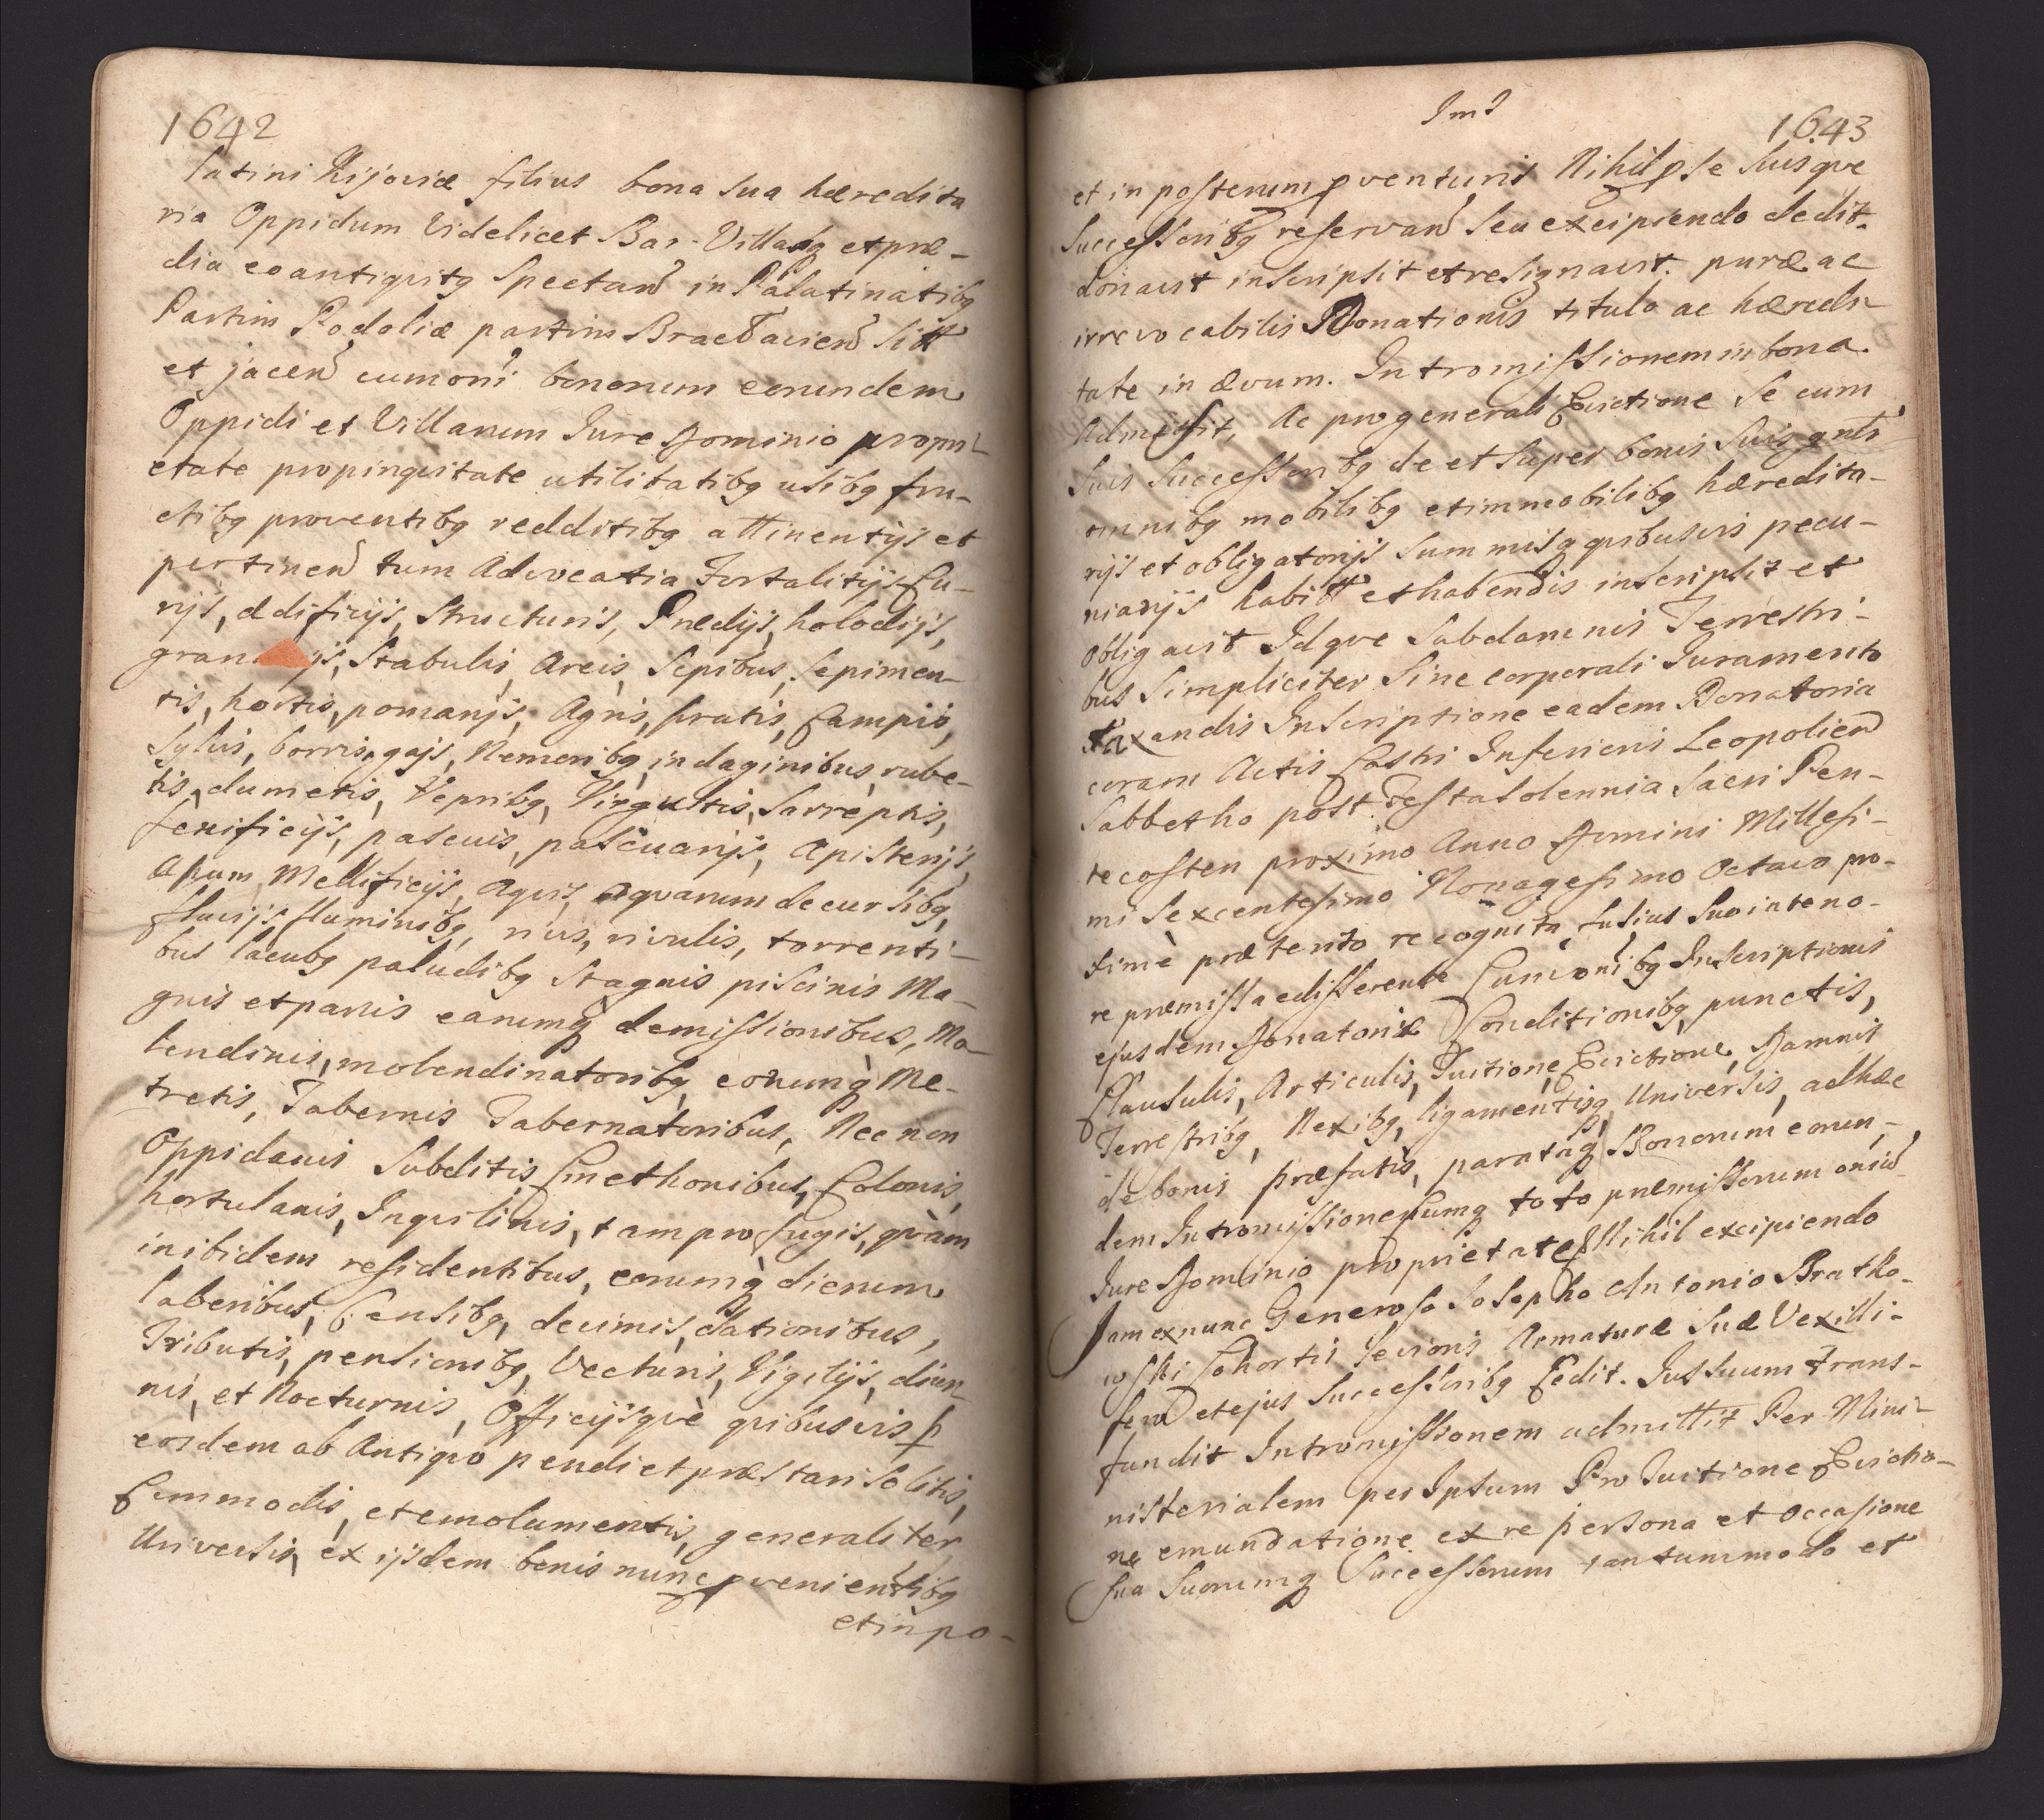 1642
latini Kijoviæ filius bona sua hæredita
ria Oppidum Videlicet Bar. Villasq et præ-
dia eo antiquitq Spectand in Palatinatibq
Partim Podoliæ partim Braclavien sitt
et jacen cum omi bonorum eorundem
Oppidi et Villarum Jure Dominio propri-
etate propinquitate utilitatibq usibq fru-
ctibq proventibq redditibq attinentijs et
pertinen tum Advocatia Fortalitijs Cu-
rijs, ædificijs, Structuris, Prædijs, folodijs,
gran ijs, Stabulis, Areis, Sepibus, Sepimen-
tis, hortis, pomarijs, Agris, pratis, Campis,
Sylvis, borris, gajs, Nemoribq, indaginibus, rube-
tis, dumetis, Vepribq, Virgultis, Sarreptis,
fenificijs, pascuis, pascuarijs, Apisterijs,
Apum Mellificijs, Aquis, aquarum decursibq,
fluvijs, fluminibq, rivis, rivulis, torrenti-
bus lacubq paludibq Stagnis piscinis Ma-
gnis et parvis earumq demissionibus, Mo-
lendinis, molendinatoribq, eorumq Me-
tretis, Tabernis Tabernatoribus, Nec non
Oppidanis Subditis Cmethonibus, Colonis,
hortulanis, Inquilinis, tam profugis, quàm
inibidem residentibus, eorumq dierum
laboribus, Censibq, decimis, dationibus,
Tributis, pensionibq, Vecturis, Vigilijs, diur-
nis, et Nocturnis, Officijsque quibusvis p
eosdem ab Antiquo pendi et præstari solitis,
Commodis, et emolumentis, generaliter
Universis, ex ijsdem bonis nunc pvenientibq
et in po-
Imd
1643
et in posterum pventuris Nihil p se suisque
Successoribq reservan seu excipiendo dedit.
donavit inscripsit et resignavit. puræ ac
irrevocabilis Donationis titulo ac hæredi-
tate in ævum. Intromissionem in bona
Admisit, Ac pro generali Evictione Se cum
Suis Successoribq de et super bonis Suis gnlr
omnibq mobilibq et immobilibq hæredita-
rijs et obligatorijs Summisq quibusvis pecu-
niarijs habitt et habendis inscripsit et
obligavit Idque Sub damnis Terrestri-
bus Simpliciter Sine corporali Juramento
taxandis Inscriptione eadem Donatoria
coram Actis Castri Inferioris Leopolien
Sabbatho post Festa Solennia Sacri Pen-
tecosten proximo Anno Domini Millesi-
mi Sexcentesimo Nonagesimo Octavo pro-
ximè prætento recognita fusius Suo in teno-
re præmissa edisserente Cum omibq Inscriptionis
ejusdem Donatoriæ Conditionibq, punctis,
Clausulis, Articulis, Tuitione, Evictione, Damnis
Terrestribq, Nexibq, ligamentisq Universis, adhæc
de bonis præfatis, parataq Bonorum eorun-
dem Intromissione, Cumq toto præmissorum omiu
Jure Dominio proprietate Nihil excipiendo
Jam ex nunc Generoso Josepho Antonio Bratko-
wski Cohortis levioris Armaturæ Suæ Vexilli-
fero et ejus Successoribq Cedit. Jus suum trans-
fundit Intromissionem admittit Per Mini-
nisterialem per Ipsum Pro Tuitione Evictio-
ne emundatione ex re persona et occasione
Sua Suorumq Successorum tantummodo et